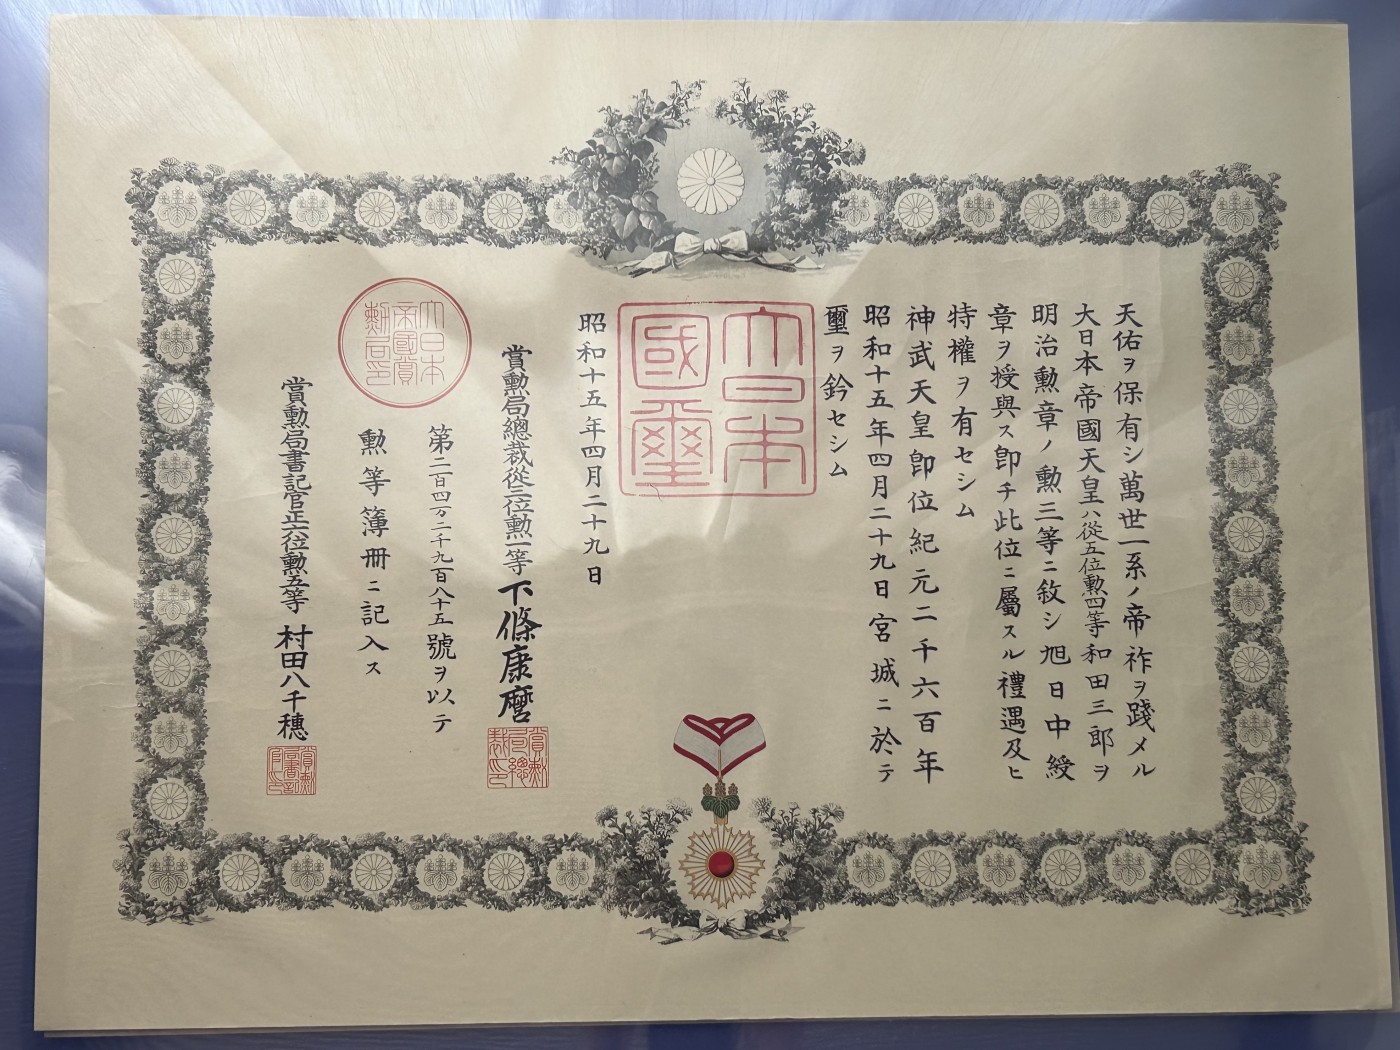 天佑ヲ保有シ萬世一系ノ帝祚ヲ踐メル
大日本帝國天皇ハ從五位勲四等和田三郎ヲ
明治勲章ノ勲三等ニ敘シ旭日中綬
章ヲ授與ス卽チ此位ニ屬スル禮遇及ヒ
特權ヲ有セシム
神武天皇卽位紀元二千六百年
昭和十五年四月二十九日宮城ニ於テ
璽ヲ鈐セシム
大日本國璽
昭和十五年四月二十九日
賞勲局總裁從三位勲一等下條康麿
賞勲局總裁印
第二百四万二千九百八十五號ヲ以テ
勲等簿冊ニ記入ス
大日本帝國賞勲局印
賞勲局書記官正六位勲五等村田八千穗
賞勲局書記官印